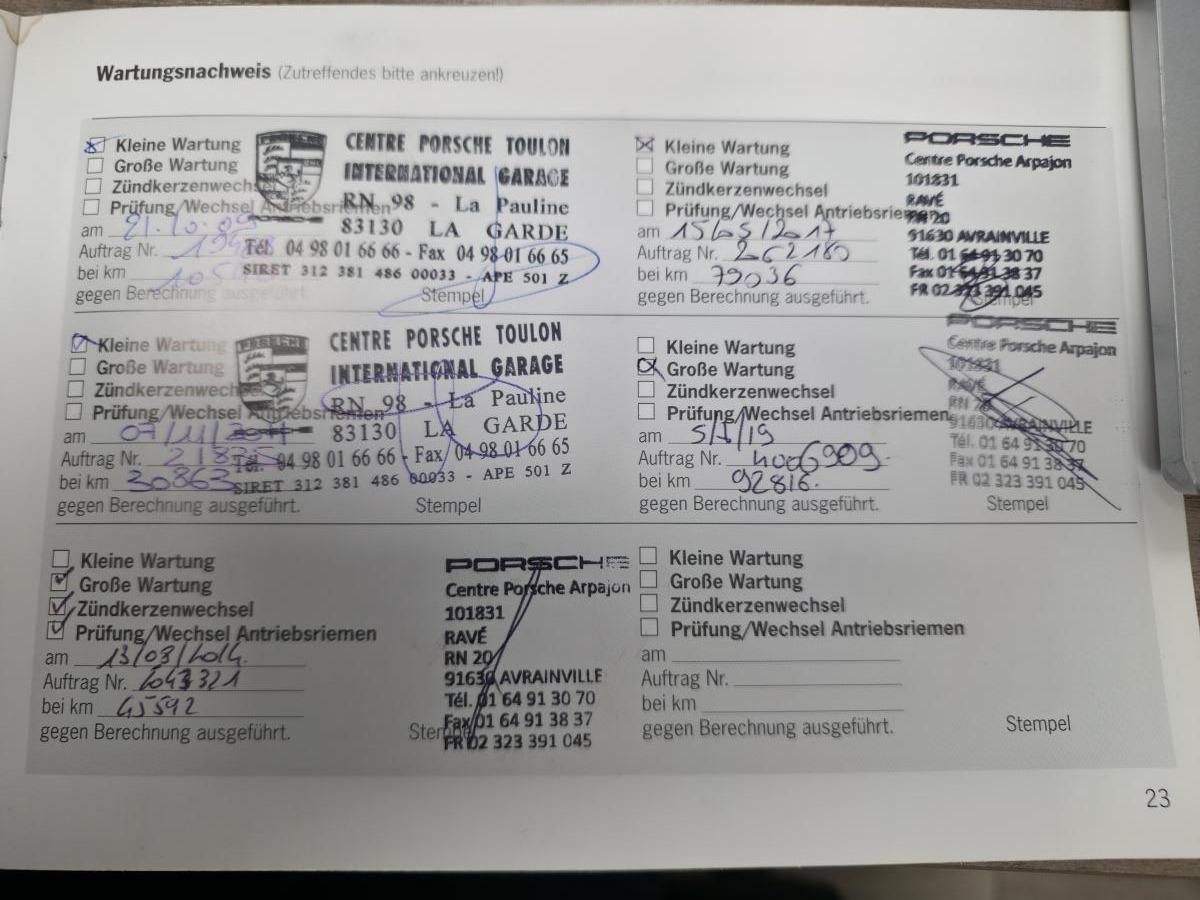 Wartungsnachweis (Zutreffendes bitte ankreuzen!)
Kleine Wartung
Große Wartung
Zündkerzenwechsel
Prüfung/Wechsel Antriebsriemen
am 21.10.09
Auftrag Nr.
bei km
gegen Berechnung ausgeführt.
Stempel
PORSCHE
CENTRE PORSCHE TOULON
INTERNATIONAL GARAGE
RN 98 - La Pauline
83130 LA GARDE
Tél. 04 98 01 66 66 - Fax 04 98 01 66 65
SIRET 312 381 486 00033 - APE 501 Z
Kleine Wartung
Große Wartung
Zündkerzenwechsel
Prüfung/Wechsel Antriebsriemen
am 15/05/2017
Auftrag Nr. 262180
bei km 79036
gegen Berechnung ausgeführt.
Stempel
PORSCHE
Centre Porsche Arpajon
101831
RAVÉ
RN 20
91630 AVRAINVILLE
Tél. 01 64 91 30 70
Fax 01 64 91 38 37
FR 02 323 391 045
Kleine Wartung
Große Wartung
Zündkerzenwechsel
Prüfung/Wechsel Antriebsriemen
am 07/11/2011
Auftrag Nr.
bei km 30863
gegen Berechnung ausgeführt.
Stempel
PORSCHE
CENTRE PORSCHE TOULON
INTERNATIONAL GARAGE
RN 98 - La Pauline
83130 LA GARDE
Tél. 04 98 01 66 66 - Fax 04 98 01 66 65
SIRET 312 381 486 00033 - APE 501 Z
Kleine Wartung
Große Wartung
Zündkerzenwechsel
Prüfung/Wechsel Antriebsriemen
am
Auftrag Nr. 4006909
bei km 92816.
gegen Berechnung ausgeführt.
Stempel
PORSCHE
Centre Porsche Arpajon
101831
RAVÉ
RN 20
91630 AVRAINVILLE
Tél. 01 64 91 30 70
Fax 01 64 91 38 37
FR 02 323 391 045
Kleine Wartung
Große Wartung
Zündkerzenwechsel
Prüfung/Wechsel Antriebsriemen
am 13/03/2014
Auftrag Nr.
bei km 45592
gegen Berechnung ausgeführt.
Stempel
PORSCHE
Centre Porsche Arpajon
101831
RAVÉ
RN 20
91630 AVRAINVILLE
Tél. 01 64 91 30 70
Fax 01 64 91 38 37
FR 02 323 391 045
Kleine Wartung
Große Wartung
Zündkerzenwechsel
Prüfung/Wechsel Antriebsriemen
am
Auftrag Nr.
bei km
gegen Berechnung ausgeführt.
Stempel
23